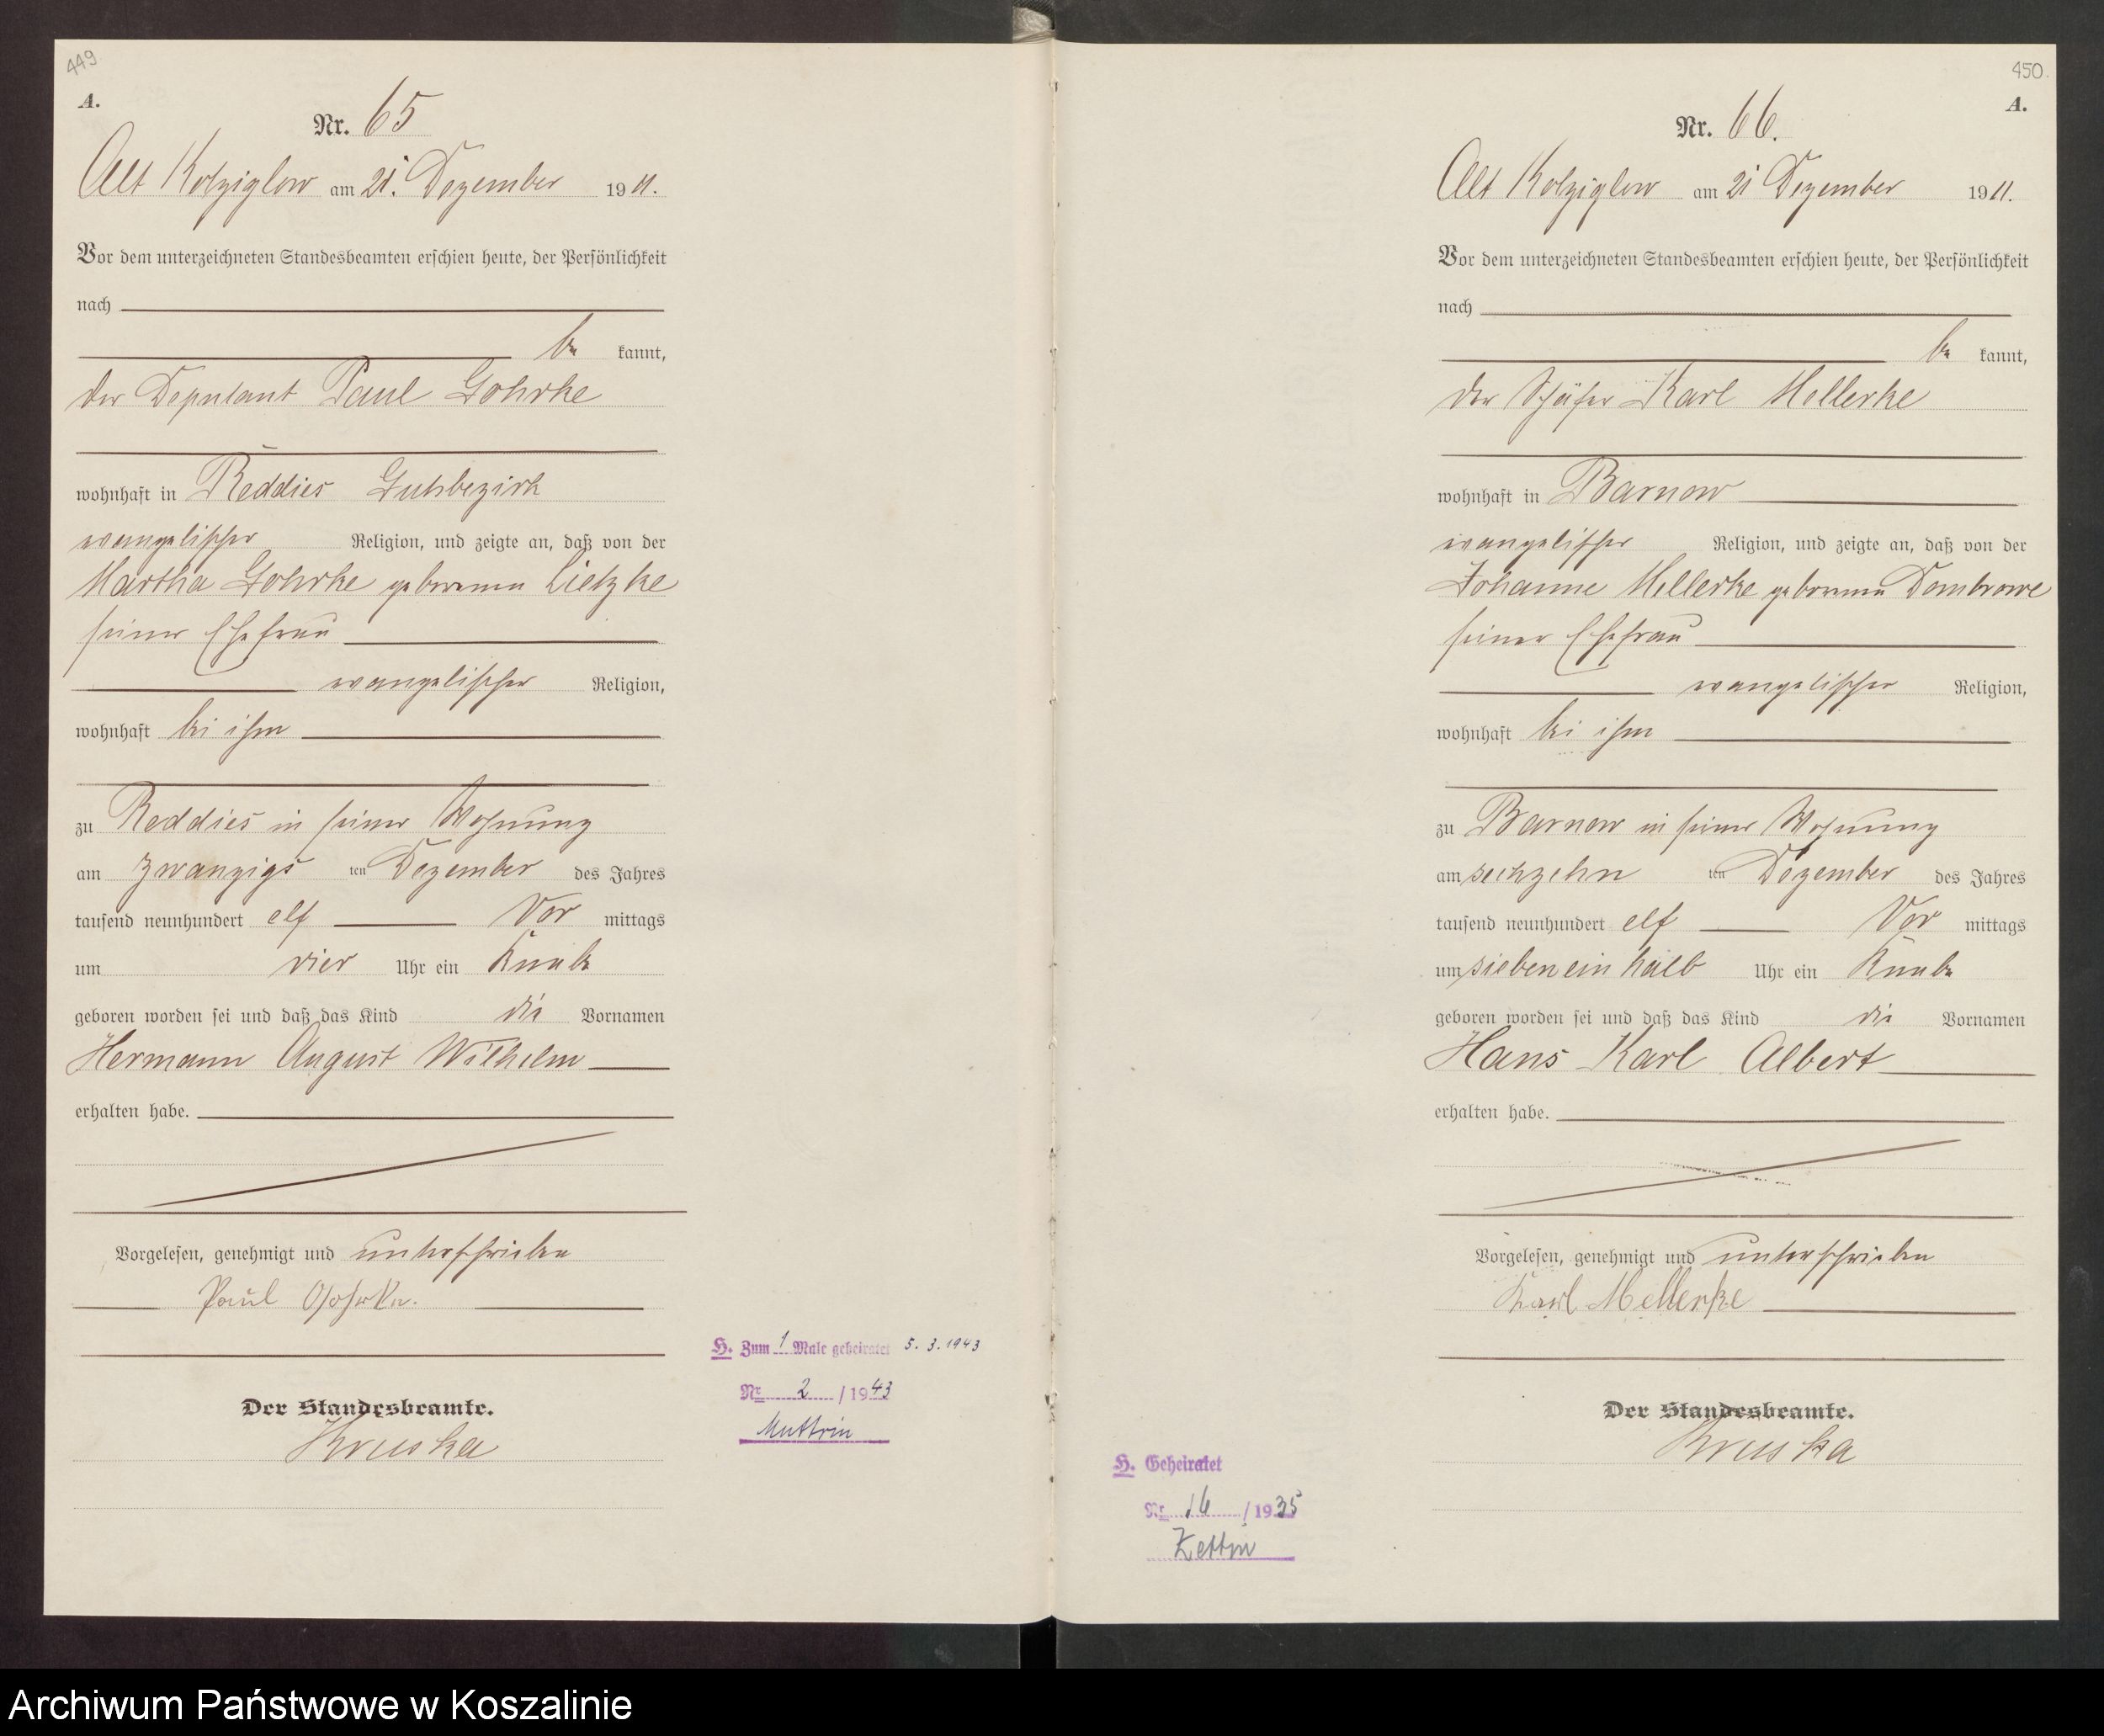 449
A.
Nr. 65
Alt Kolziglow am 21. Dezember 1911.
Vor dem unterzeichneten Standesbeamten erschien heute, der Persönlichkeit
nach
be kannt,
der Deputant Paul Gohrke
wohnhaft in Reddies Gutsbezirk
evangelischer Religion, und zeigte an, daß von der
Martha Gohrke geborenen Lietzke
seiner Ehefrau
evangelischer Religion,
wohnhaft bei ihm
zu Reddies in seiner Wohnung
am zwanzigs ten Dezember des Jahres
tausend neunhundert elf Vor mittags
um vier Uhr ein Knabe
geboren worden sei und daß das Kind die Vornamen
Hermann August Wilhelm
erhalten habe.
Vorgelesen, genehmigt und unterschrieben
Paul Gohrke.
Der Standesbeamte.
Kruska
H. Zum 1 Male geheiratet 5.3.1943
Nr 2 / 1943
Muttrin
450.
A.
Nr. 66.
Alt Kolziglow am 21 Dezember 1911.
Vor dem unterzeichneten Standesbeamten erschien heute, der Persönlichkeit
nach
be kannt,
der Schäfer Karl Mellerke
wohnhaft in Barnow
evangelischer Religion, und zeigte an, daß von der
Johanne Mellerke geborenen Dombrowe
seiner Ehefrau
evangelischer Religion,
wohnhaft bei ihm
zu Barnow in seiner Wohnung
am sechzehn ten Dezember des Jahres
tausend neunhundert elf Vor mittags
um siebeneinhalb Uhr ein Knabe
geboren worden sei und daß das Kind die Vornamen
Hans Karl Albert
erhalten habe.
Vorgelesen, genehmigt und unterschrieben
Karl Mellerke
Der Standesbeamte.
Kruska
H. Geheiratet
Nr 16 / 1935
Zettin
Archiwum Państwowe w Koszalinie